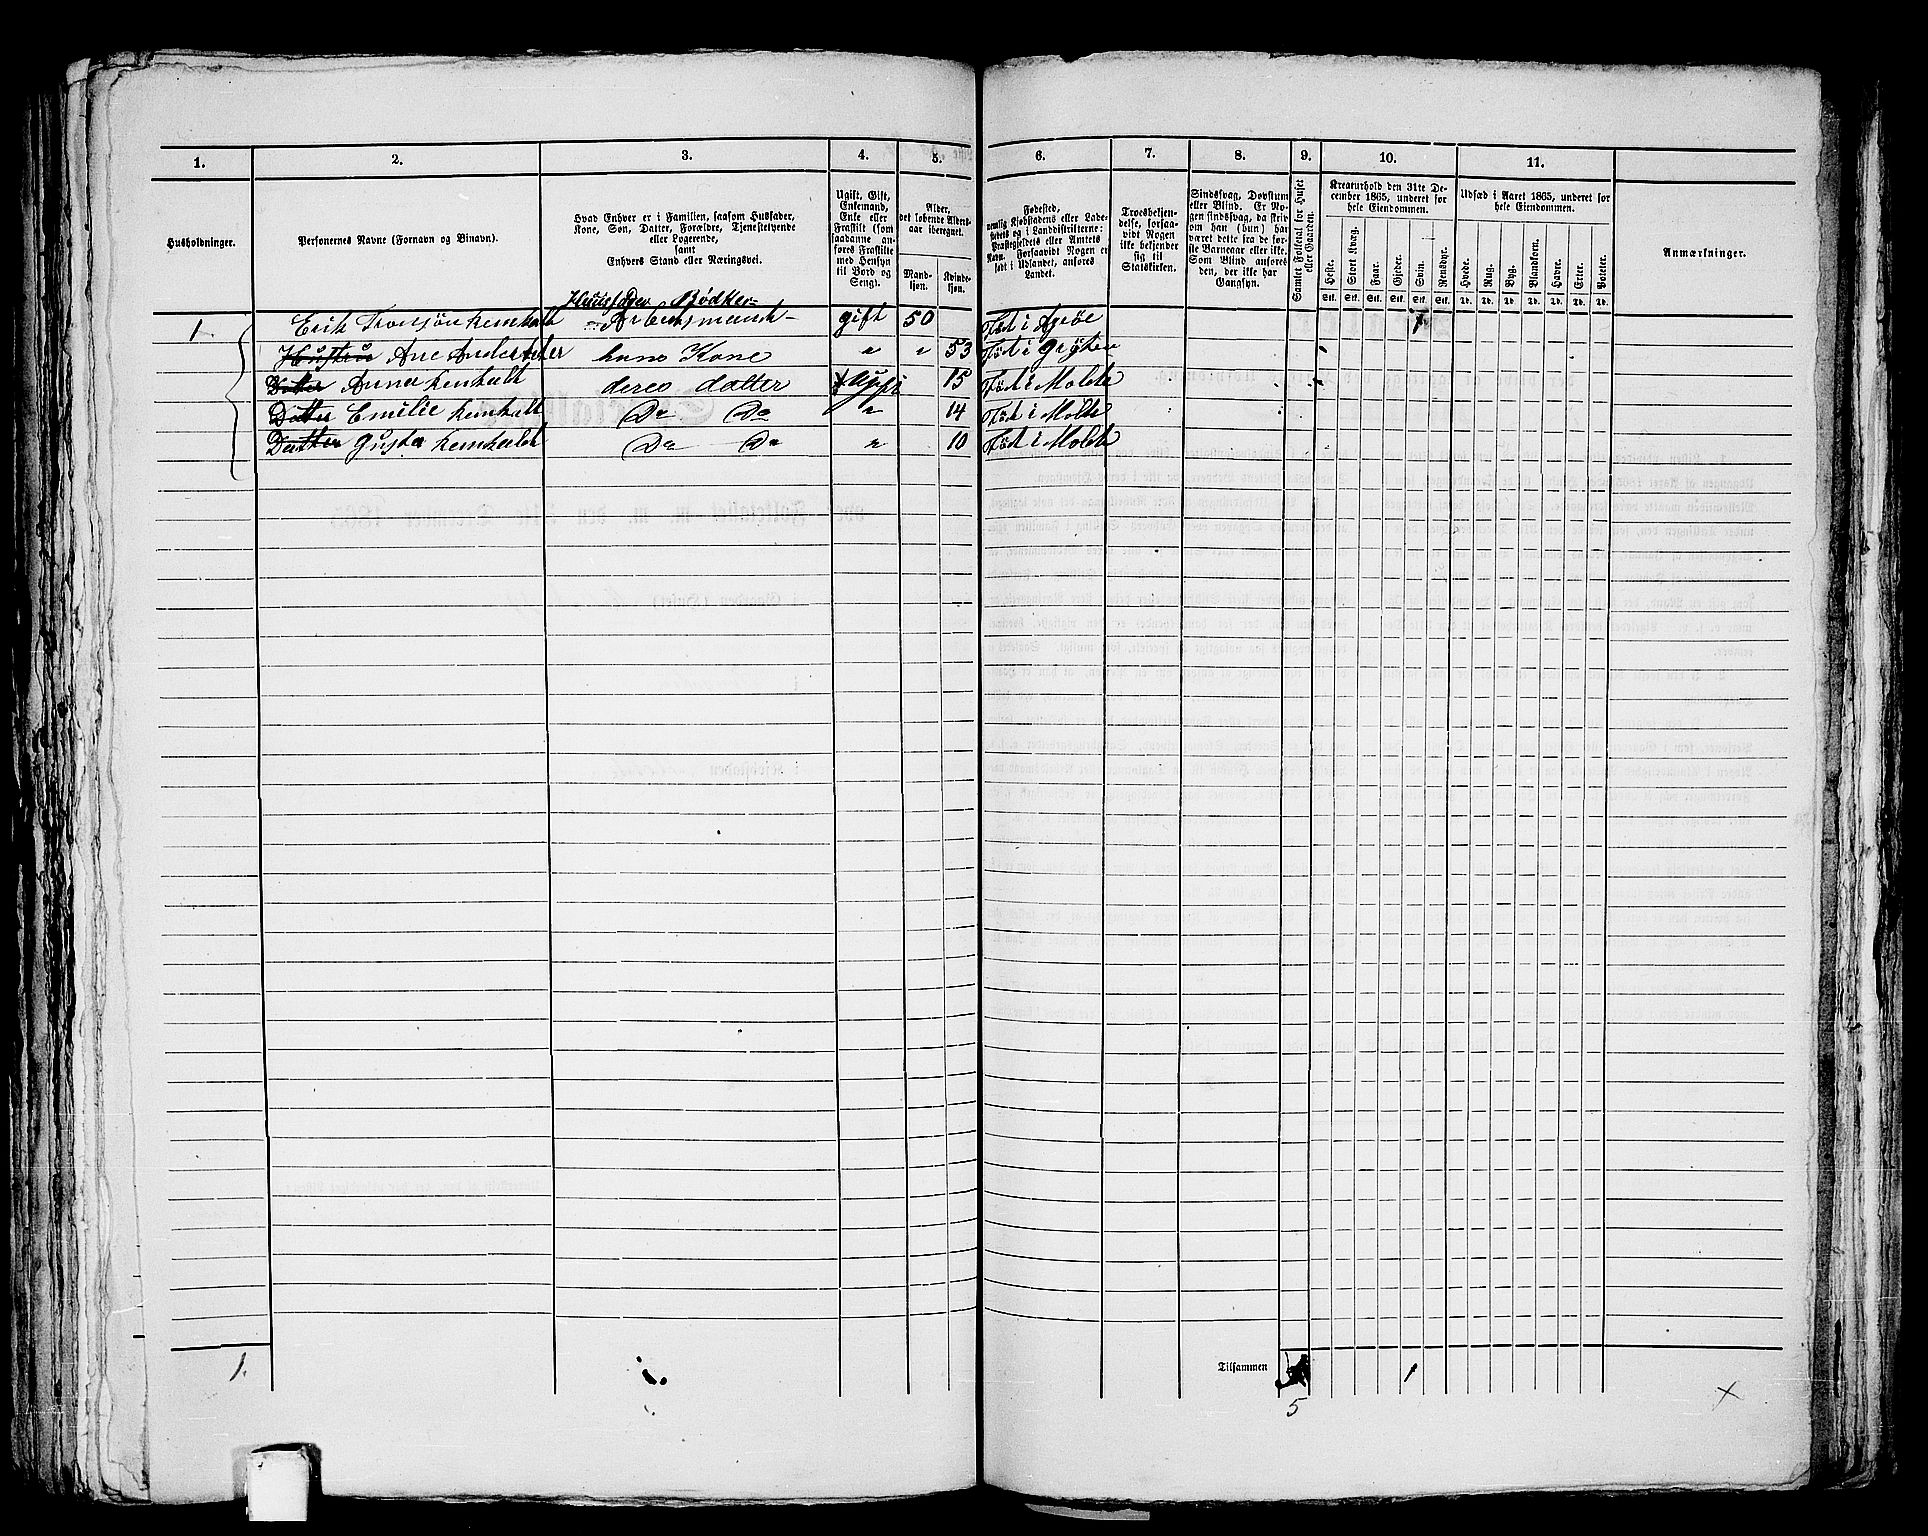 1. 2. 3. 4. 5. 6. 7. 8. 9. 10. 11.
Husholdninger.
Personernes Navne (Fornavn og Binavn).
Hvad Enhver er i Familien, saasom Husfader, Kone, Søn, Datter, Forældre, Tjenestetyende eller Logerende, samt Enhvers Stand eller Næringsvei.
Ugift, Gift, Enkemand, Enke eller Fraskilt (som saadanne anføres Fraskilte med Hensyn til Bord og Seng).
Alder, det løbende Aldersaar iberegnet.
Mandkjøn. Kvindekjøn.
Fødested, nemlig Kjøbstadens eller Ladestedets og i Landdistrikterne: Præstegjeldets eller Amtets Navn. Forsaavidt Nogen er født i Udlandet, anføres Landet.
Troesbekjendelse, forsaavidt Nogen ikke bekjender sig til Statskirken.
Sindssvag, Døvstum eller Blind. Er Nogen sindssvag, da skrives om han (hun) har været dette fra de første Barneaar eller ikke. Som Blind anføres den, der ikke har Gangsyn.
Samlet Folketal for Huset eller Gaarden.
Kreaturhold den 31te December 1865, underet for hele Eiendommen.
Heste. Stort Kvæg. Faar. Gjeder. Svin. Rensdyr.
Stk. Stk. Stk. Stk. Stk. Stk.
Udsæd i Aaret 1865, underet for hele Eiendommen.
Hvede. Rug. Byg. Blandkorn. Havre. Erter. Poteter.
Td. Td. Td. Td. Td. Td. Td.
Anmærkninger.
Huusfader Bødker
1 Erik Arbeidsmand gift 50 Født i 1
Hustru Ane hans Kone " " 53 Født i
Datter Anna deres datter Ugift 15 Født i Molde
Datter Emilie Do Do " 14 Født i Molde
Datter Gusta Do Do " 10 Født i Molde
1. Tilsammen 5 1